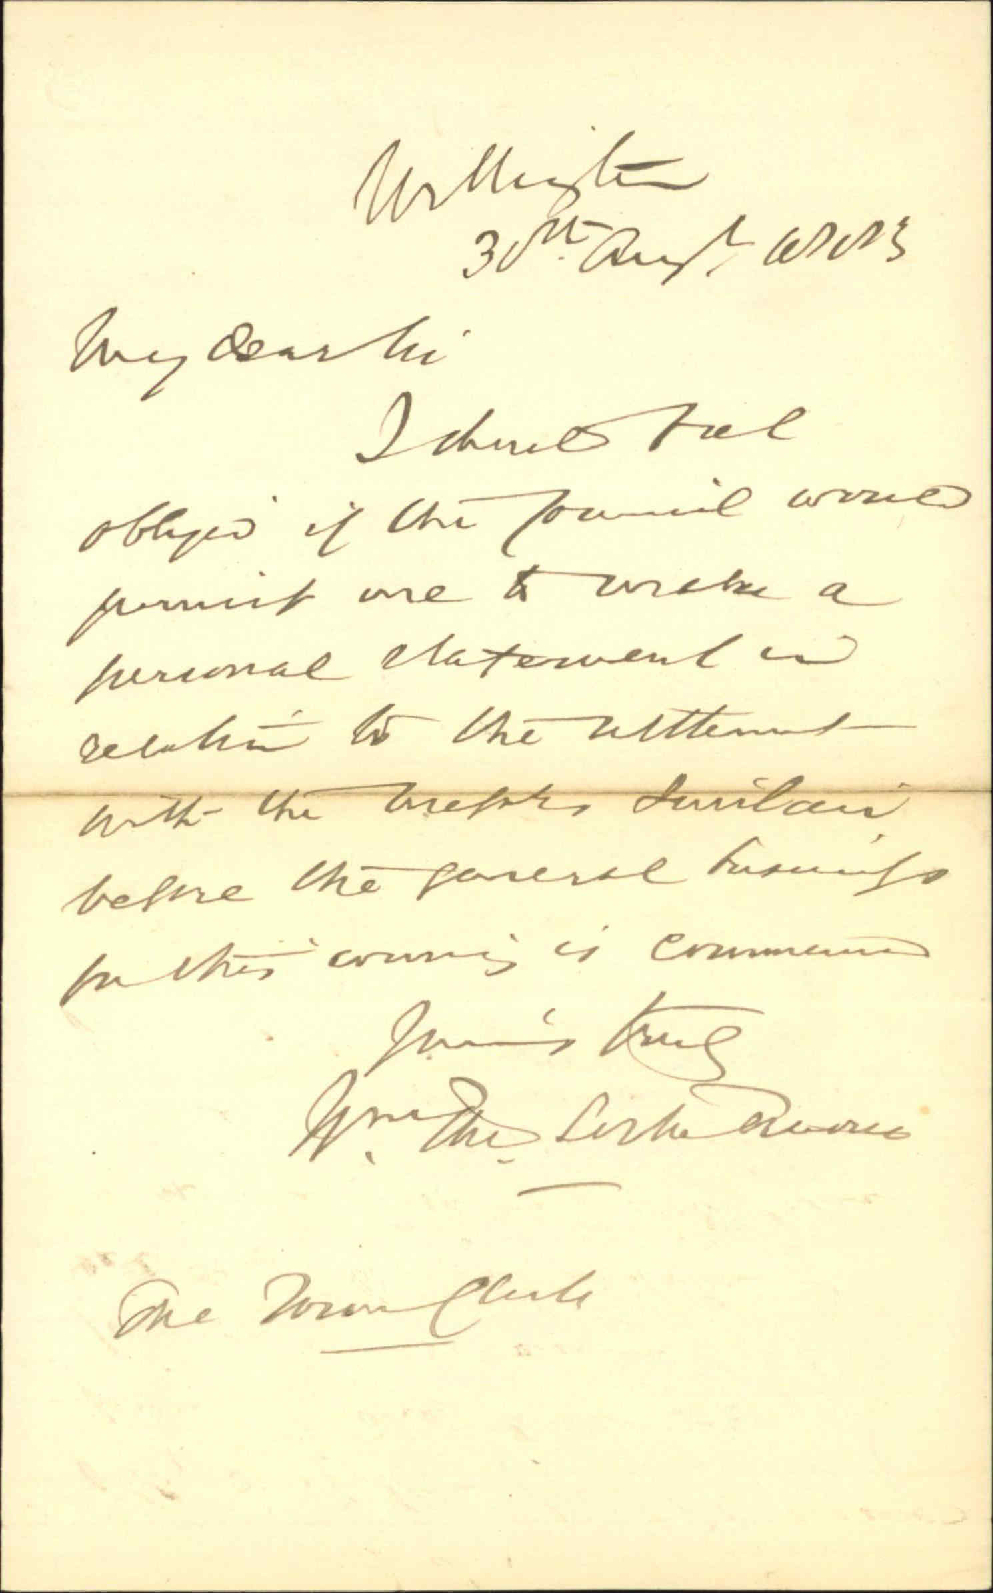 Wellington
30th Augt. 1883
My dear Sir
I should feel
obliged if the Council would
permit me to make a
personal statement in
relation to the settlement
with the Messrs
before the general business
for this evening is commenced
Yours truly
Wm. Thos. Locke Travers
The Town Clerk